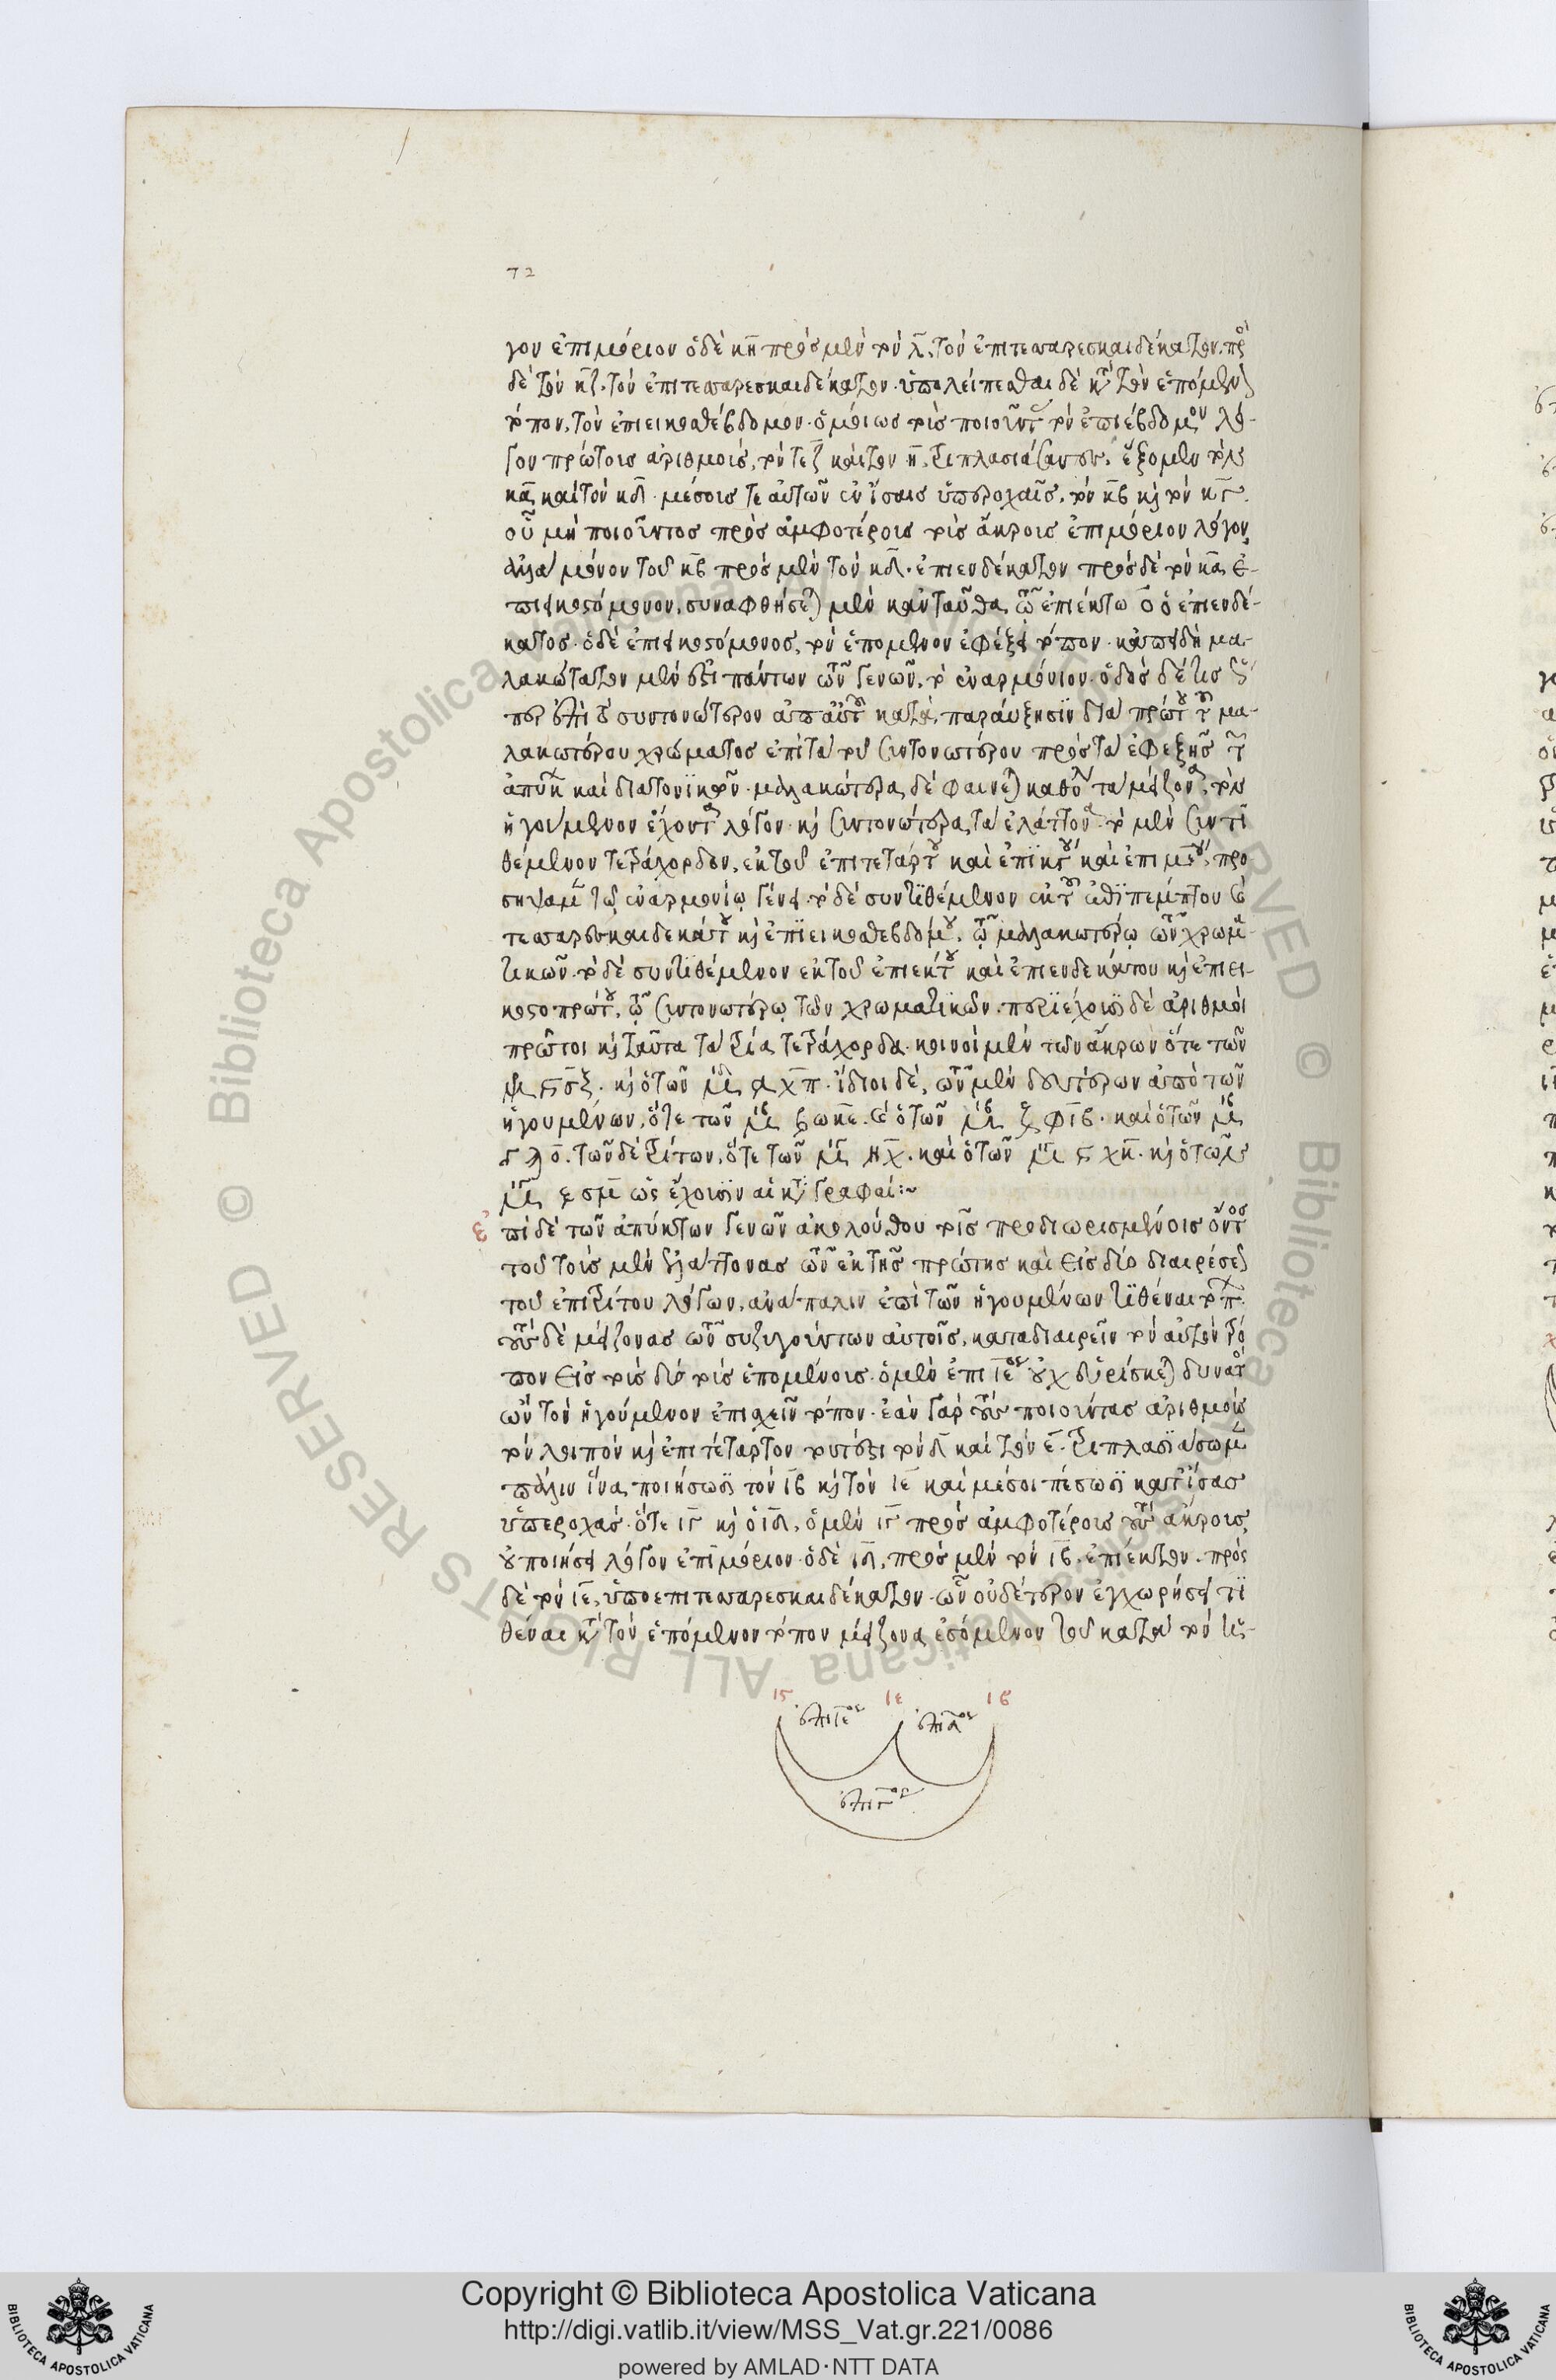 72
γον ἐπιμόριον ὁ δὲ κη πρὸς μὲν τὸν λ, τὸν ἐπιτεσσαρεσκαιδέκατον, πρὸς
δὲ τὸν κζ, τὸν ἐπιτεσσαρεσκαιδέκατον. ὑπολείπεσθαι δὲ κατὰ τὸν ἑπόμενον
τόπον, τὸν ἐπιεικοσθέβδομον. ὁμοίως τοὺς ποιοῦντας τὸν ἐπιέβδομον λό-
γον πρώτους ἀριθμοὺς, τόν τε ζ καὶ τὸν η, τριπλασιάσαντες, ἕξομεν τὸν
κα καὶ τὸν κδ. μέσους τε αὐτῶν ἐν ἴσαις ὑπεροχαῖς, τὸν κβ καὶ τὸν κγ.
οὗ μὴ ποιοῦντος πρὸς ἀμφοτέρους τοὺς ἄκρους ἐπιμόριον λόγον,
ἀλλὰ μόνον τοῦ κβ πρὸς μὲν τὸν κδ. ἐπιενδέκατον πρὸς δὲ τὸν κα ἐ-
πιεικοστόμονον, συναφθήσεται μὲν κἀνταῦθα, τῷ ἐπιέκτῳ ὁ ἐπιενδέ-
κατος. ὁ δὲ ἐπιεικοστόμονος, τὸν ἑπόμενον ἐφέξει τόπον. κἀπειδὴ μα-
λακώτατον μέν ἐστι πάντων τῶν γενῶν, τὸ ἐναρμόνιον. ὁδὸς δέ τις ὥσ-
περ ἐπὶ τὸ συντονώτερον ἀπ' αὐτοῦ κατὰ παραύξησιν διὰ πρώτου τοῦ μα-
λακωτέρου χρώματος ἐπὶ τὰ τοῦ συντονωτέρου πρὸς τὰ ἐφεξῆς τῶν
ἀπύκνων καὶ διατονικῶν. μαλακώτερα δὲ φαίνεται καθόλου τὰ μείζονα, τὸν
ἡγούμενον ἔχοντα λόγον. καὶ συντονώτερα τὰ ἐλάττονα. τὸ μὲν συντι
θέμενον τετράχορδον, ἐκ τοῦ ἐπιτετάρτου καὶ ἐπικγου καὶ ἐπιμεου, προ
σήψαμεν τῷ ἐναρμονίῳ γένει. τὸ δὲ συντιθέμενον ἐκ τοῦ ἐπιπέμπτου καὶ
τεσσαρεσκαιδεκάτου καὶ ἐπιεικοσθεβδόμου, τῷ μαλακωτέρῳ τῶν χρωμα-
τικῶν. τὸ δὲ συντιθέμενον ἐκ τοῦ ἐπιέκτου καὶ ἐπιενδεκάτου καὶ ἐπιει-
κοστοπρώτου, τῷ συντονωτέρῳ τῶν χρωματικῶν. περιέχουσι δὲ ἀριθμοὶ
πρῶτοι καὶ ταῦτα τὰ τρία τετράχορδα. κοινοὶ μὲν τῶν ἄκρων ὅ τε τῶν
ἡγουμένων, ὅ τε τῶν
ὡς ἔχουσιν αἱ καταγραφαί:~
ἐπὶ δὲ τῶν ἀπύκνων γενῶν ἀκολούθου τοῖς προδιωρισμένοις ὄντος
τοῦ τοὺς μὲν ἐλάττονας τῶν ἐκ τῆς πρώτης καὶ εἰς δύο διαιρέσεως
τοῦ ἐπιτρίτου λόγων, ἀνάπαλιν ἐπὶ τῶν ἡγουμένων τιθέναι τόπων.
τοὺς δὲ μείζονας τῶν συζυγούντων αὐτοῖς, καταδιαιρεῖν τὸν αὐτὸν τρό
πον εἰς τοὺς δύο τοὺς ἑπομένους. ὁ μὲν ἐπιιεος οὐχ εὑρίσκεται δυνατὸς
ὢν τὸν ἡγούμενον ἐπισχεῖν τόπον. ἐὰν γὰρ τοὺς ποιοῦντας ἀριθμοὺς
τὸν λοιπὸν καὶ ἐπιτέταρτον τουτέστι τὸν δ καὶ τὸν ε. τριπλασιάσωμεν
πάλιν ἵνα ποιήσωσι τὸν ιβ καὶ τὸν ιε καὶ μέσοι πέσωσι κατ' ἴσας
ὑπεροχὰς. ὅ τε ιγ καὶ ὁ ιδ, ὁ μὲν ιγ πρὸς ἀμφοτέρους τοὺς ἄκρους,
οὐ ποιήσει λόγον ἐπιμόριον. ὁ δὲ ιδ, πρὸς μὲν τὸν ιβ. ἐπιέκτον. πρὸς
δὲ τὸν ιε, ὑποεπιτεσσαρεσκαιδέκατον. ὧν οὐδέτερον ἐγχωρήσει τι
θέναι κατὰ τὸν ἑπόμενον τόπον μείζονα ἐσόμενον τοῦ κατὰ τὸν
ις ιε ιβ
ἐπιιεος ἐπιδος
ἐπιγος
Copyright © Biblioteca Apostolica Vaticana
http://digi.vatlib.it/view/MSS_Vat.gr.221/0086
powered by AMLAD·NTT DATA
BIBLIOTECA APOSTOLICA VATICANA
BIBLIOTECA APOSTOLICA VATICANA
© Biblioteca Apostolica Vaticana ALL RIGHTS RESERVED